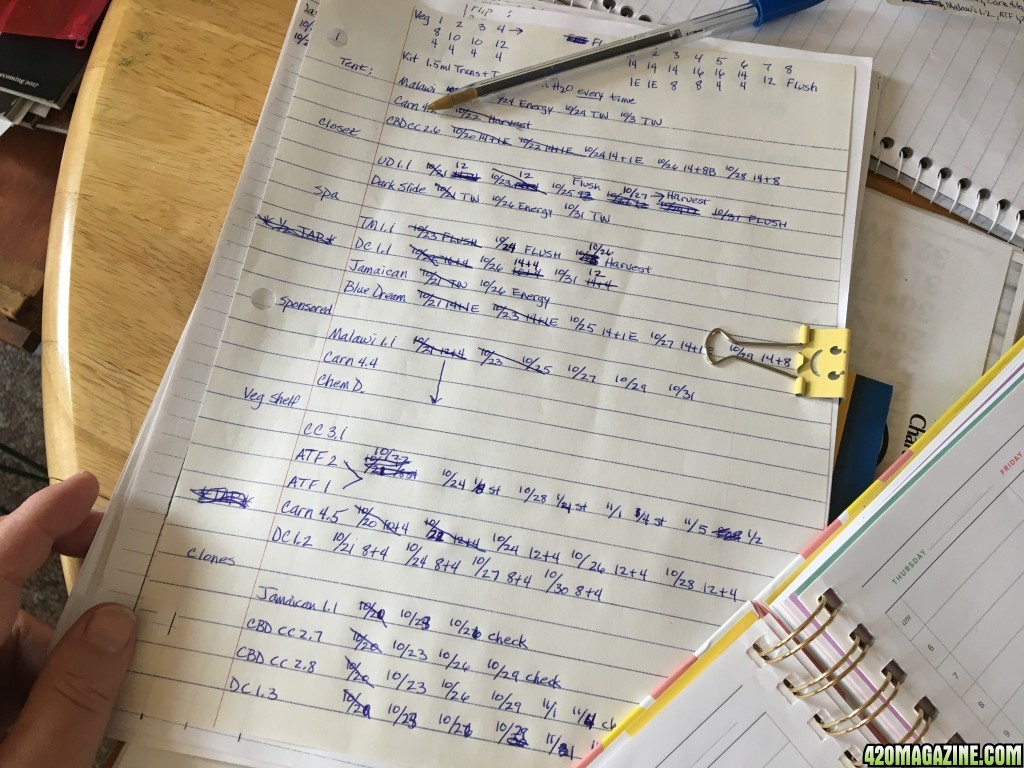 Veg 1 2 3 4 →
8 10 10 12
4 4 4 4
3 4 5 6 7 8
14 14 14 16 16 14 12 Flush
1E 1E 8 8 4 4
Kit 1.5ml Trans+T H2O every time
Tent:
Malawi 10/24 Energy 10/29 TW 10/3 TW
Carn 4. 10/22 Harvest
CBDCC 2.6 10/20 14+1E 10/22 14+1E 10/24 14+1E 10/26 14+8B 10/28 14+8
Closet
UD 1.1 10/21 12 10/23 12 10/25 Flush 12 10/27 → Harvest 10/31 FLUSH
Dark Slide 10/21 TW 10/26 Energy 10/31 TW
Spa
TM 1.1 10/23 FLUSH 10/24 FLUSH 10/26 Harvest
* 1/2 JAR *
DC 1.1 14+4 10/26 14+4 10/31 12 14+4
Jamaican 10/21 TW 10/26 Energy
Blue Dream 10/21 14+1E 10/23 14+1E 10/25 14+1E 10/27 14+1 10/29 14+8
Sponsored
Malawi 1.1 10/21 12+4 10/23 10/25 10/27 10/29 10/31
Carn 4.4
Chem D.
Veg Shelf
CC 3.1
ATF 2 10/22
ATF 1 10/24 st 10/28 1/4 st 11/1 3/4 st 11/5 1/2
Carn 4.5 10/20 10+4 10/22 12+4 10/24 12+4 10/26 12+4 10/28 12+4
DC 1.2 10/21 8+4 10/24 8+4 10/27 8+4 10/30 8+4
Clones
Jamaican 1.1 10/20 10/23 10/26 check
CBD CC 2.7 10/20 10/23 10/26 10/29 check
CBD CC 2.8 10/20 10/23 10/26 10/29 11/1 11/4 ch
DC 1.3 10/20 10/23 10/26 10/29
Malawi 1.2, ATF
THURSDAY
FRIDAY
am
6
7
8
9
420MAGAZINE.COM